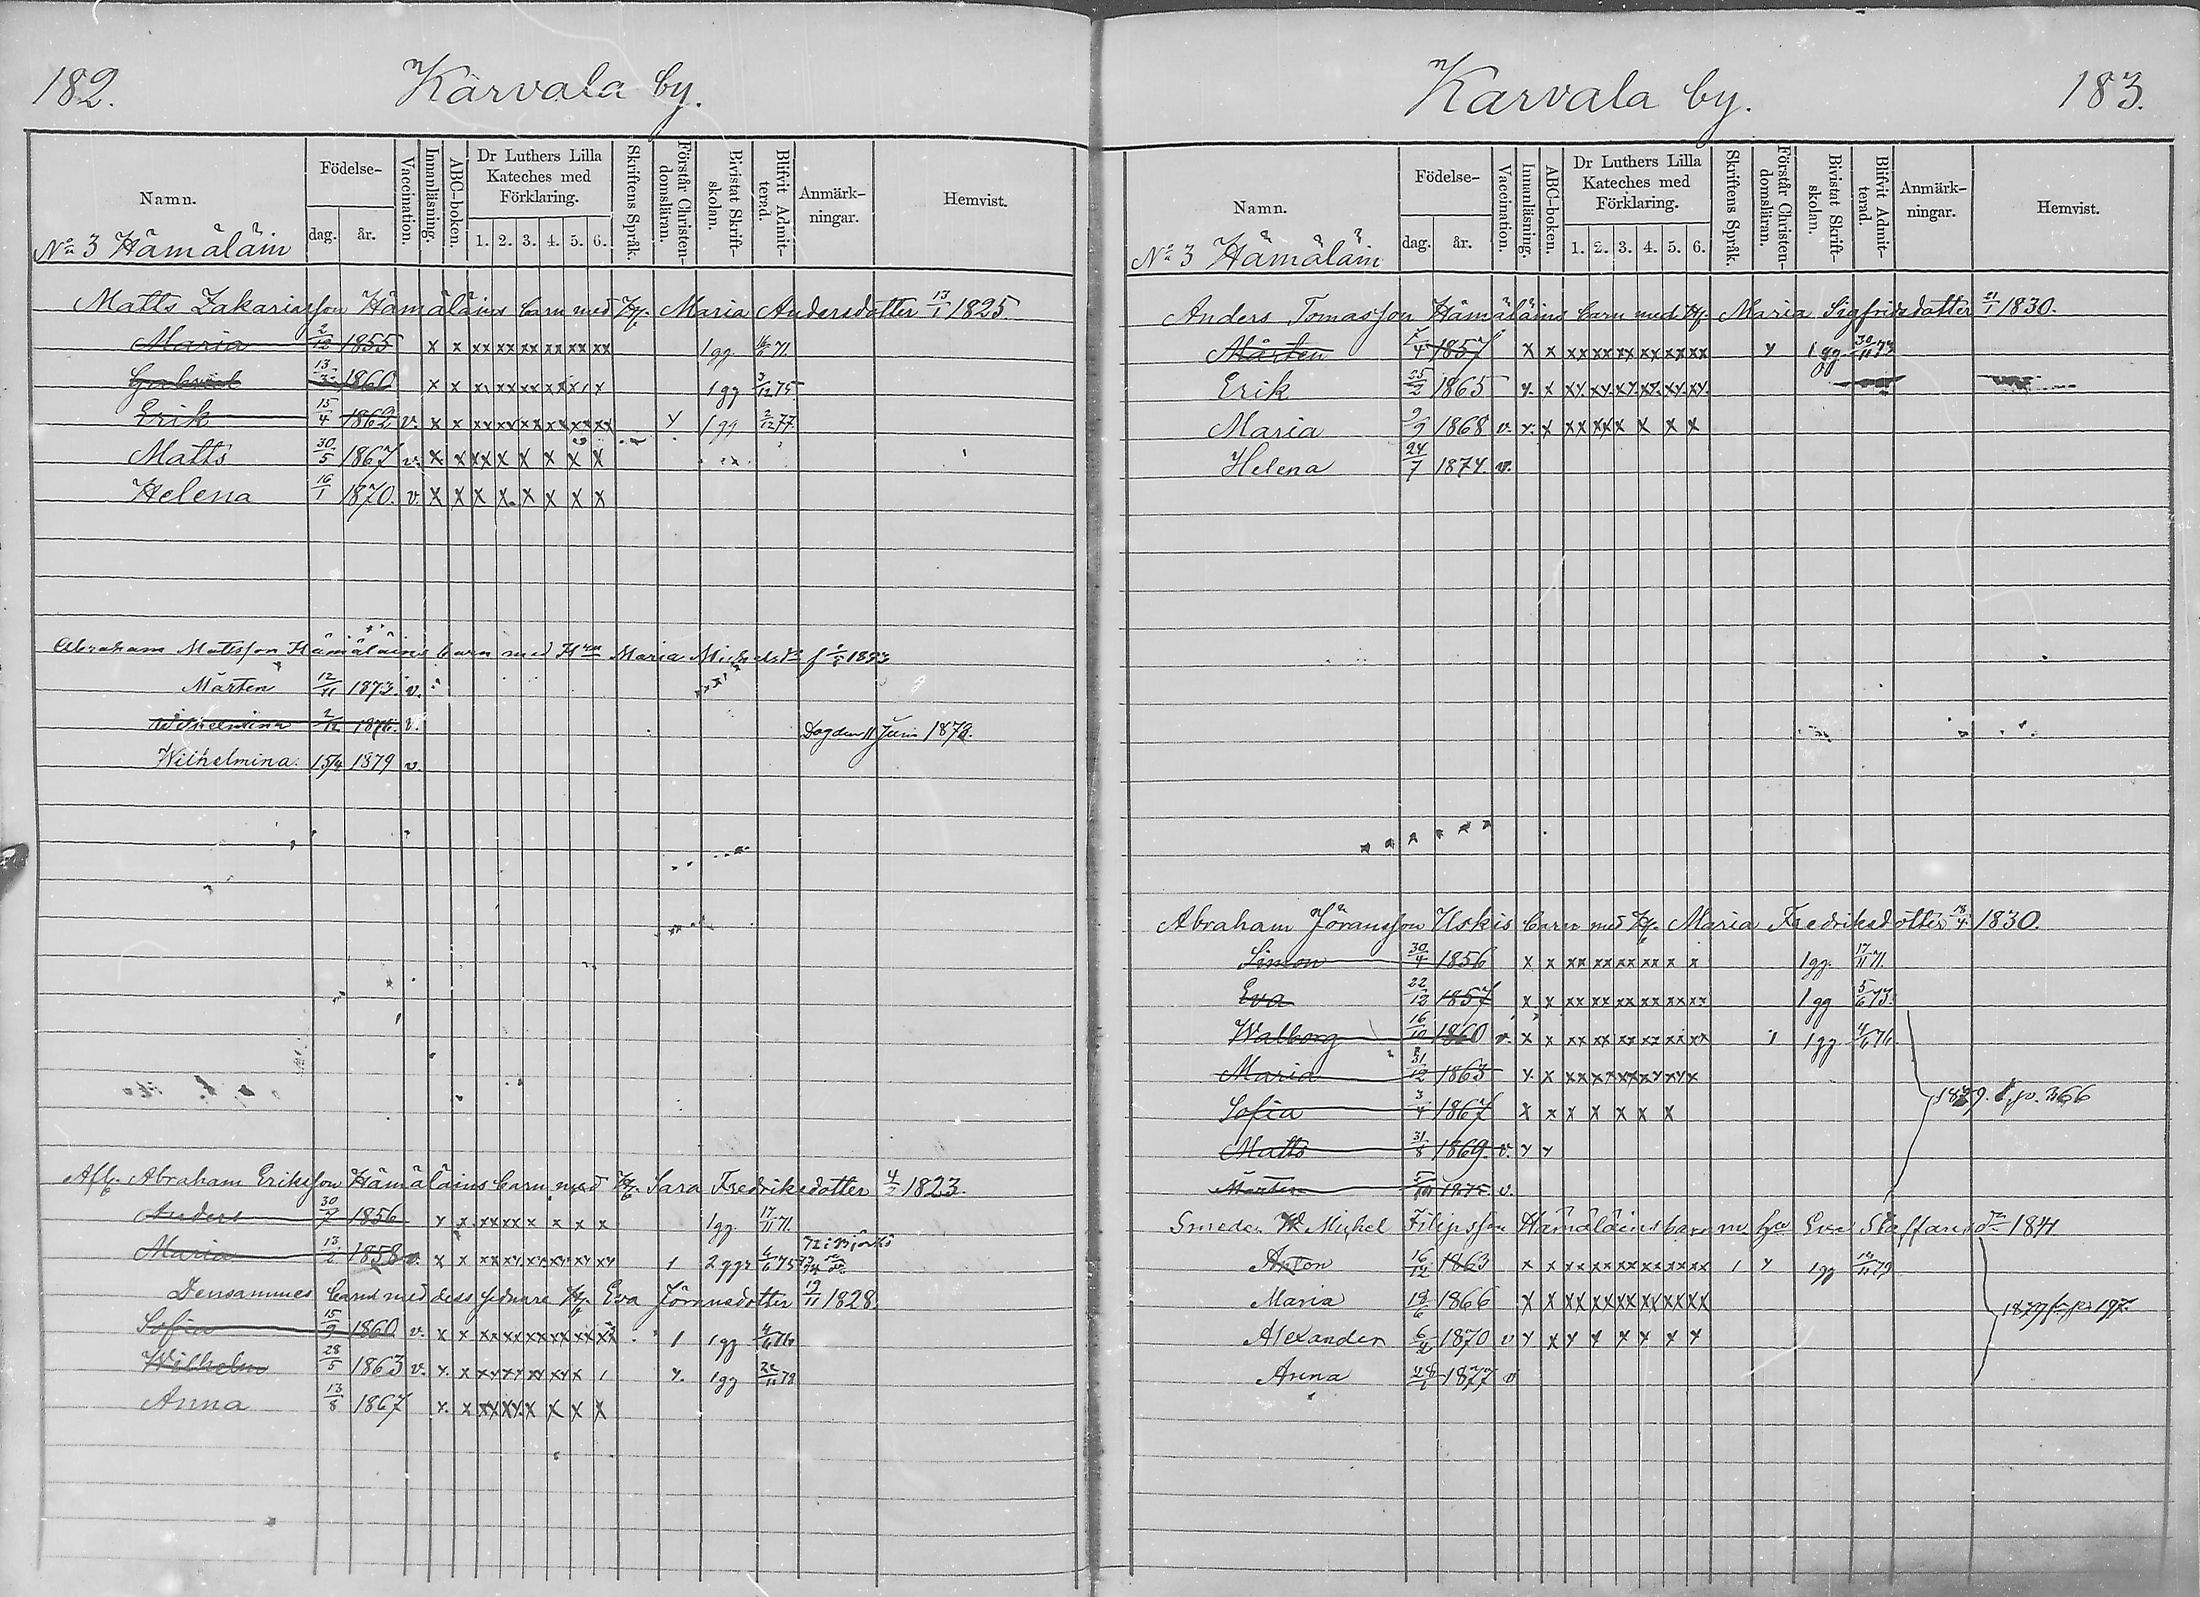 182.
Kärvala by.
Namn.
Födelse-
dag.
år.
Vaccination.
Innanläsning.
ABC-boken.
Dr Luthers Lilla Kateches med Förklaring.
1. 2. 3. 4. 5. 6.
Skriftens Språk.
Förstår Christen-domsläran.
Bivistat Skrift-skolan.
Blifvit Admit-terad.
Anmärk-ningar.
Hemvist.
No 3 Hämäläin
Matts Zakariasson Hämäläins barn med H. Maria Andersdotter 13/1 1825
Maria 2/12 1855 x x xx xx xx xx xx xx 1 gg 71.
Gabriel 13/3 1860 x x 1 gg 3/12 75.
Erik 15/4 1862 v. x x xx xx xx xx xx xx y 1 gg 2/12 77.
Matts 30/5 1867 v. x x xx x x x x x
Helena 16/1 1870. v. x x x x x x x x
Abraham Mattsson Hämäläins barn med Hun Maria
Mårten 12/11 1873. v.
Wilhelmina 2/12 1876. v. Dog den 11 Juni 1878.
Wilhelmina. 15/4 1879 v.
Afl. Abraham Eriksson Hämäläins barn med H. Sara Fredriksdotter 1823.
Anders 30/7 1856 x x xx xx x x x x 1 gg 17/11 71.
Maria 13/2 1858 v. x x 1 2 ggr 4/6 75
Densammes barn med dess sednare H. Eva Jöransdotter 19/11 1828.
Sofia 15/9 1860 v. x x xx xx xx xx xx xx 1 1 gg 4/6 76
Wilhelm 28/5 1863 v. x x y. 1 gg 22/11 78
Anna 13/8 1867 x x xx xx x x x x
Kärvala by.
183.
Namn.
Födelse-
dag.
år.
Vaccination.
Innanläsning.
ABC-boken.
Dr Luthers Lilla Kateches med Förklaring.
1. 2. 3. 4. 5. 6.
Skriftens Språk.
Förstår Christen-domsläran.
Bivistat Skrift-skolan.
Blifvit Admit-terad.
Anmärk-ningar.
Hemvist.
No 3 Hämäläin
Anders Tomasson Hämäläins barn med H. Maria Sigfridsdotter 21/1 1830.
Mårten 1857 x x xx xx xx xx xx xx y 1 gg 30/11 73
Erik 25/2 1865 x. x xx. xx. xx. xx. xx. xx.
Maria 9/9 1868 v. x. x xx xx x x x x
Helena 24/7 1874. v.
Abraham Jöransson Uskis barn med H. Maria Fredriksdotter 18/4 1830.
Simon 30/4 1856 x x xx xx xx xx x x 1 gg. 17/11 71.
Eva 22/12 1857 x x xx xx xx xx xx xx 1 gg 5/6 73.
Walborg 16/10 1860 v. x x xx xx xx xx xx xx 1 1 gg 4/6 76
Maria 31/12 1863 x x
Sofia 3/4 1867 x x x x x x x
1879. p. 366
Matts 31/8 1869. v. y y
Mårten 1875 v.
Smeden Mickel Filipsson Hämäläins barn m. Eva Staffansdr 1841
Anton 16/12 1863 x x xx xx xx xx xx xx 1 y 1 gg 79
Maria 18/6 1866 x x xx xx xx xx xx xx
1879 p. 197.
Alexander 1870 v y x y y y y y y
Anna 1877 v